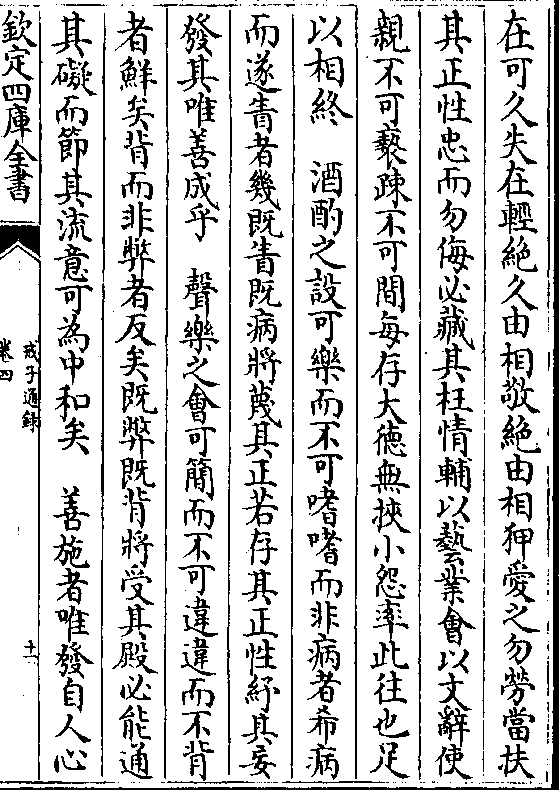 在可久失在輕絕久由相敬絕由相狎愛之勿勞當扶
其正性忠而勿侮必藏其枉情輔以藝業會以文辭使
親不可褻疎不可間每存大德無挾小怨率此往也足
以相終　酒酌之設可樂而不可嗜嗜而非病者希病
而遂眚者幾既眚既病將蔑其正若存其正性紓其妄
發其唯善戒乎　聲樂之會可簡而不可違違而不背
者鮮矣背而非弊者反矣既弊既背將受其毀必能通
其礙而節其流意可為中和矣　善施者唯發自人心
欽定四庫全書
戒子通錄
卷四
十一